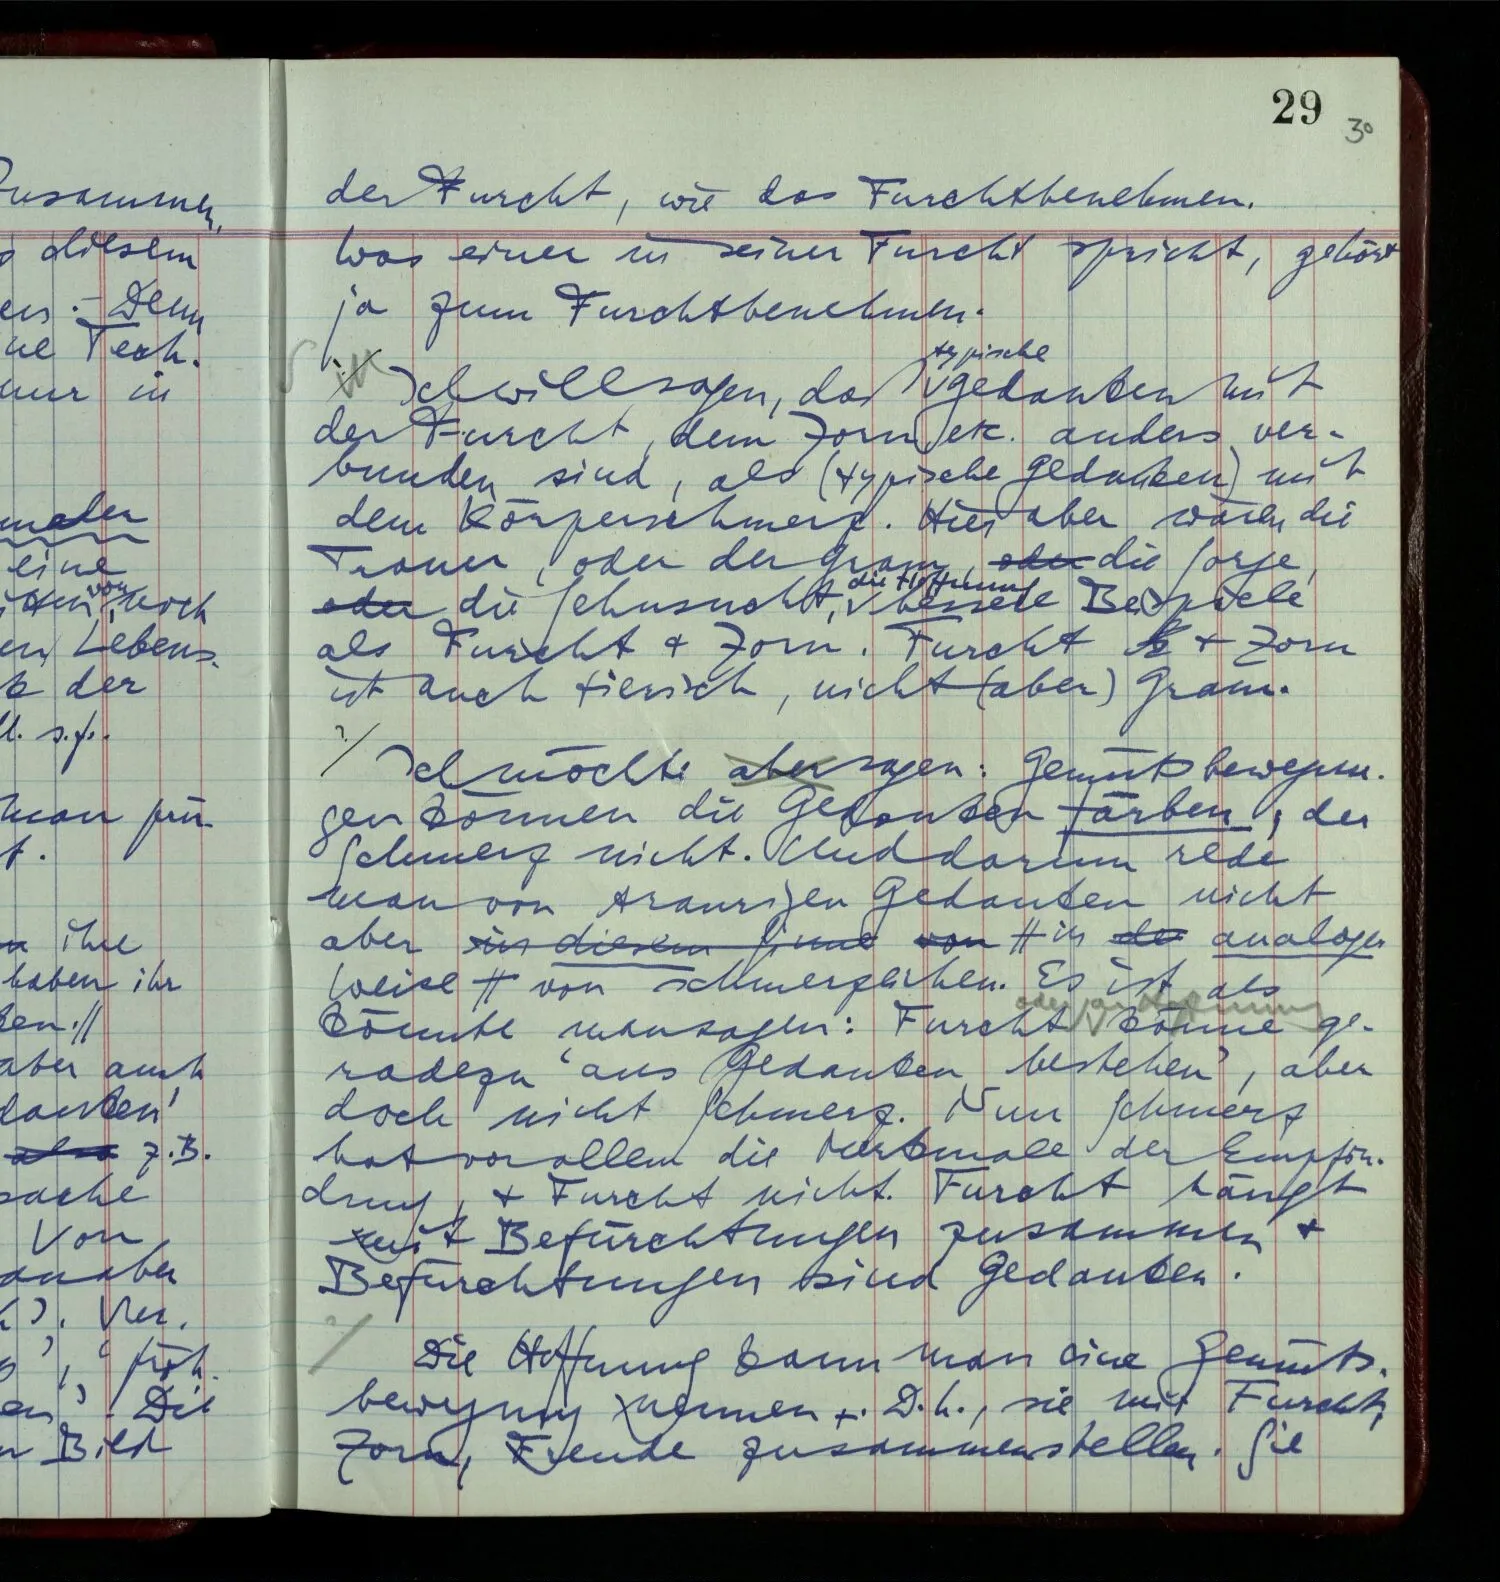 Zusammen,
diesem
Denn
ne Tech.
nur in
eine
von
noch
en Lebens-
der
u.s.f.
man
ihre
haben ihr
aber auch
danken'
also z.B.
sache
Von
Ver.
Die
Bild
29
30
der Furcht, wie das Furchtbenehmen.
Was einer in seiner Furcht spricht, gehört
ja zum Furchtbenehmen.
typische
Ich will sagen, daß Gedanken mit
der Furcht, dem Zorn etc. anders ver-
bunden sind, als (typische Gedanken) mit
dem Körperschmerz. Hier aber wären die
Trauer, oder der Gram, oder die Sorge,
die Hoffnung
oder die Sehnsucht, bessere Beispiele
als Furcht & Zorn. Furcht & Zorn
ist auch tierisch, nicht (aber) Gram.
?/
Ich möchte aber sagen: Gemütsbewegun-
gen können die Gedanken färben, der
Schmerz nicht. Und darum rede
man von traurigen Gedanken nicht
aber in diesem Sinne von // in der analogen
Weise // von schmerzlichen. Es ist als
oder gar Hoffnung
könnte man sagen: Furcht könne ge-
radezu 'aus Gedanken bestehen', aber
doch nicht Schmerz. Nun Schmerz
hat vor allem die Merkmale der Empfin-
dung, & Furcht nicht. Furcht hängt
mit Befürchtungen zusammen &
Befürchtungen sind Gedanken.
?/
Die Hoffnung kann man eine Gemüts-
bewegung nennen. D.h., sie mit Furcht,
Zorn, Freude zusammenstellen. Sie